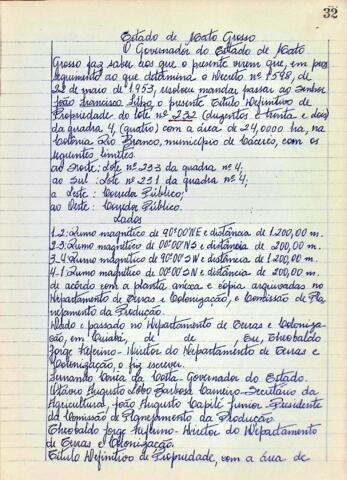 32
Estado de Mato Grosso
O Governador do Estado de Mato
Grosso faz saber aos que o presente virem que, em pros
seguimento ao que determina o Decreto nº 1598, de
22 de maio de 1953, resolveu mandar passar ao Senhor
João Francisco Filho, o presente Título Definitivo de
Propriedade do lote nº 232 (duzentos e trinta e dois)
da quadra 4, (quatro) com a área de 24,0000 ha, na
Colônia Rio Branco, município de Cáceres, com os
seguintes limites.
ao Norte: Lote nº 233 da quadra nº 4;
ao Sul : Lote nº 231 da quadra nº 4;
a Leste : Corredor Público;
ao Oeste : Corredor Público.
Lados
1-2: Rumo magnético de 90º00'NE e distância de 1.200,00 m.
2-3: Rumo magnético de 00º00'NS e distância de 200,00 m.
3-4: Rumo magnético de 90º00'SW e distância de 1.200,00 m.
4-1: Rumo magnético de 00º00'SN e distância de 200,00 m.
de acôrdo com a planta anexa e cópia arquivadas no
Departamento de Terras e Colonização, e Comissão de Pla
nejamento da Produção.
Dado e passado no Departamento de Terras e Coloniza-
ção, em Cuiabá, de de , Eu, Theobaldo
Jorge - Diretor do Departamento de Terras e
Colonização, o fiz escrever.
Fernando Corrêa da Costa - Governador do Estado.
Otávio Augusto Lobo Barbosa Carneiro - Secretário da
Agricultura, João Augusto Capilé Junior - Presidente
da Comissão de Planejamento da Produção.
Theobaldo Jorge - Diretor do Departamento
de Terras e Colonização.
Título Definitivo de Propriedade, com a área de